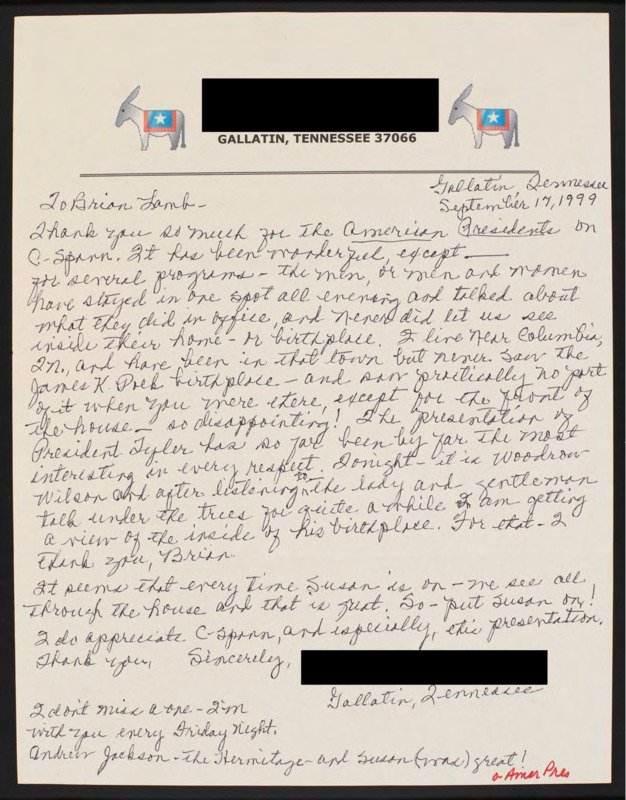 GALLATIN, TENNESSEE 37066
Gallatin, Tennessee
September 17, 1999
To Brian Lamb-
Thank you so much for the American Presidents on
C-Spann. It has been wonderful, except—
for several programs - the men, or men and women
have stayed in one spot all evening and talked about
what they did in office, and never did let us see
inside their home - or birthplace. I live near Columbia,
Tn., and have been in that town but never saw the
James K. Polk birthplace - and saw practically no part
of it when you were there, except for the front of
the house - so disappointing! The presentation of
President Tyler has so far been by far the most
interesting in every respect. Tonight - it is Woodrow
Wilson and after listening to the lady and gentleman
talk under the trees for quite a while I am getting
a view of the inside of his birthplace. For that - I
thank you, Brian.
It seems that every time Susan is on - we see all
through the house and that is just. So - put Susan on!
I do appreciate C-Spann, and especially, this presentation.
Thank you, Sincerely,
Gallatin, Tennessee
I don't miss a one - I'm
with you every Friday night.
Andrew Jackson - the Hermitage - and Susan (was) great!
a Amer Pres